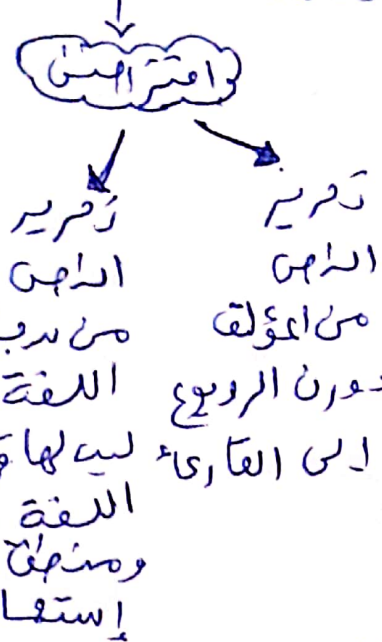 افتراضين
تحرير
النص
من المؤلف
دون الرجوع
الى القارئ
تحرير
النص
من
اللغة
ليس لها
اللغة
ومنطق